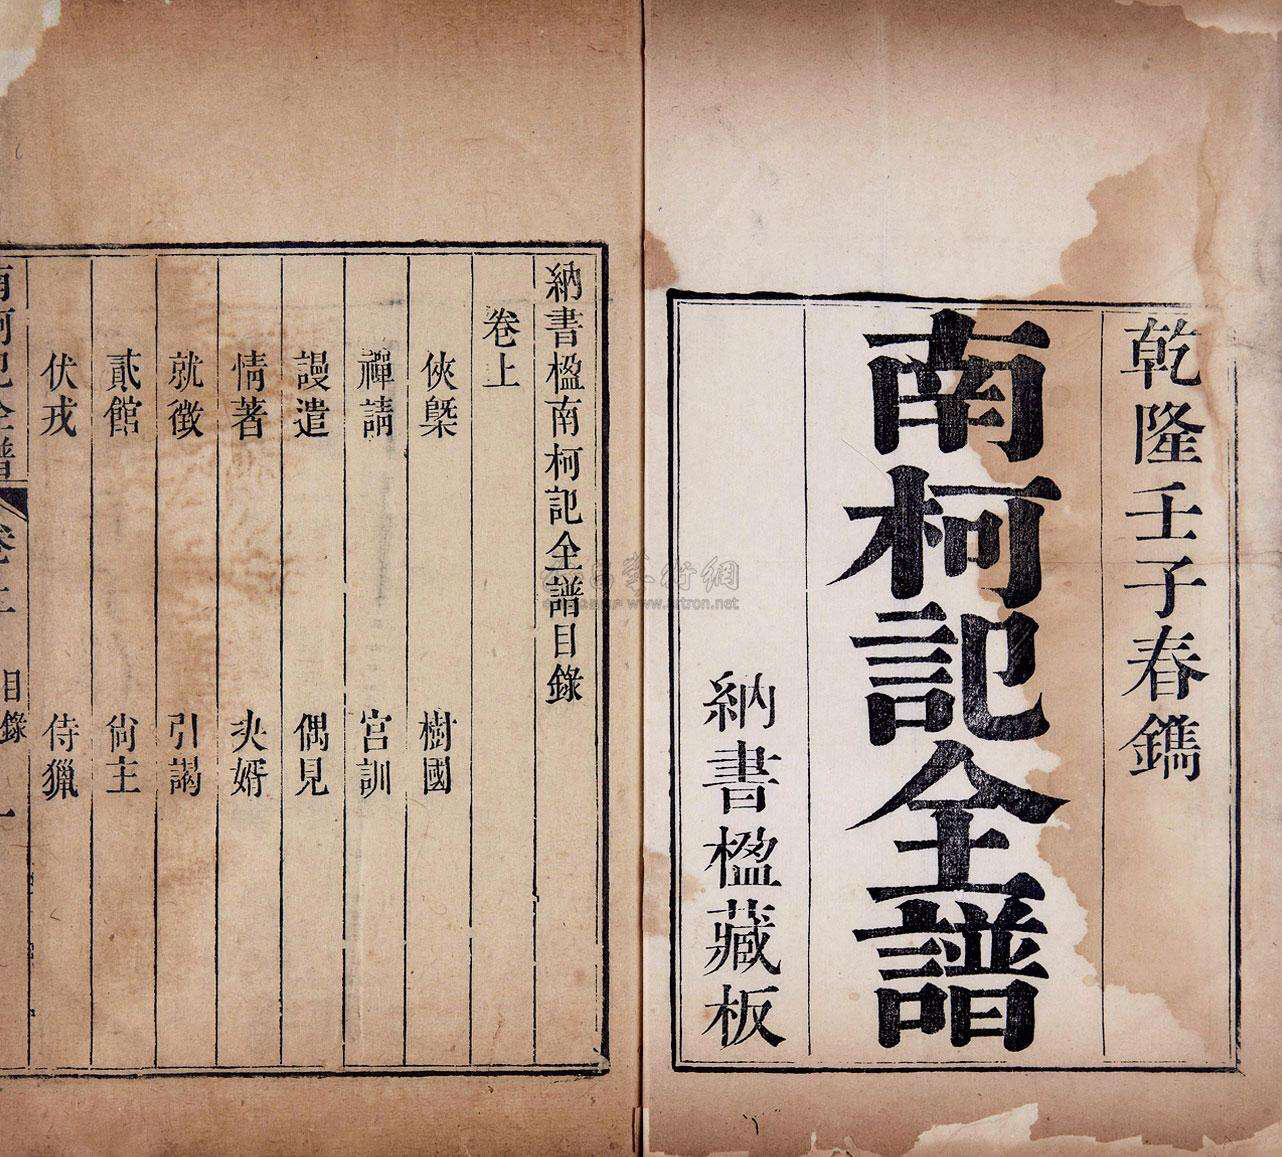 乾隆壬子春鐫
南柯記全譜
納書楹藏板
納書楹南柯記全譜目錄
卷上
俠槩 樹國
禪請 宮訓
謾遣 偶見
情著 決婿
就徵 引謁
貳館 尙主
伏戎 侍獵
南柯記全譜 卷上 目錄 一
www.artron.net